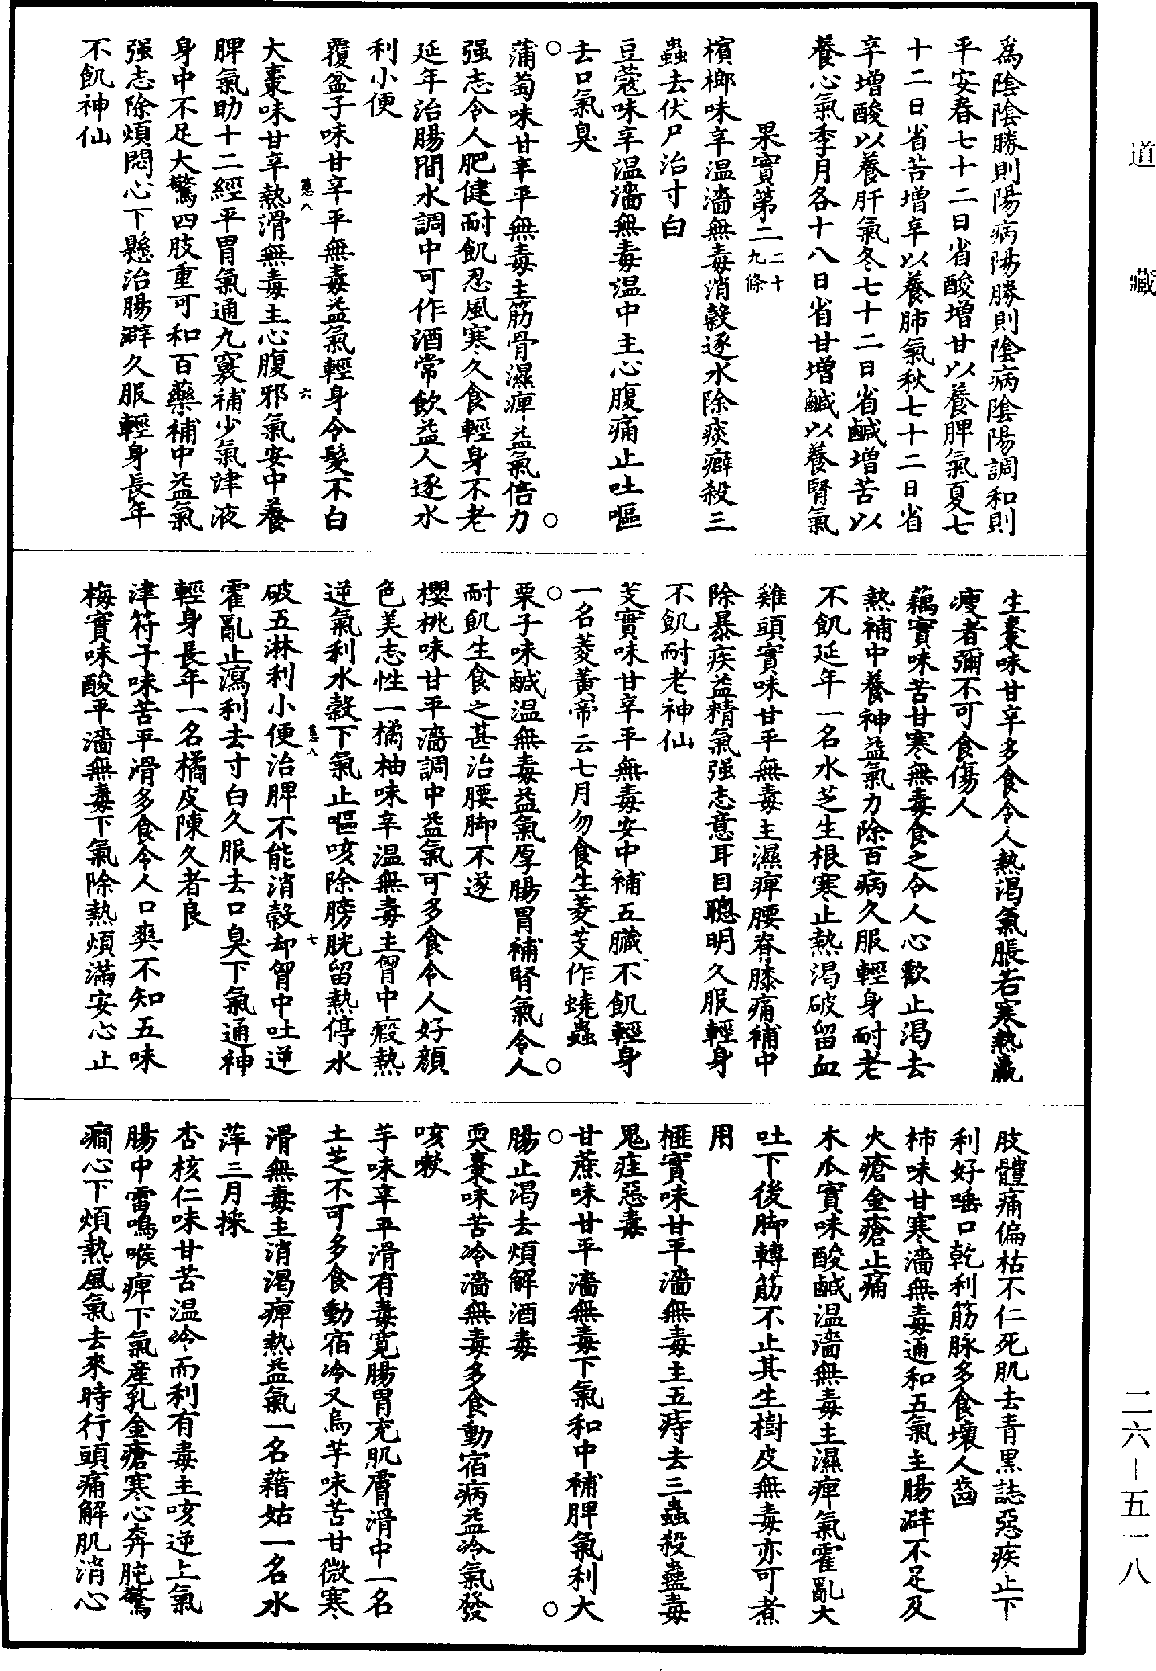 道藏
為陰陰勝則陽病陽勝則陰病陰陽調和則
平安春七十二日省酸增甘以養脾氣夏七
十二日省苦增辛以養肺氣秋七十二日省
辛增酸以養肝氣冬七十二日省鹹增苦以
養心氣季月各十八日省甘增鹹以養腎氣
果實第二二十九條
檳榔味辛溫濇無毒消穀逐水除痰癖殺三
蟲去伏尸治寸白
豆蔻味辛溫濇無毒溫中主心腹痛止吐嘔
去口氣臭
蒲萄味甘辛平無毒主筋骨濕痺益氣倍力
强志令人肥健耐飢忍風寒久食輕身不老
延年治腸間水調中可作酒常飲益人逐水
利小便
覆盆子味甘辛平無毒益氣輕身令髮不白
惡八 六
大棗味甘辛熱滑無毒主心腹邪氣安中養
脾氣助十二經平胃氣通九竅補少氣津液
身中不足大驚四肢重可和百藥補中益氣
强志除煩悶心下懸治腸澼久服輕身長年
不飢神仙
生棗味甘辛多食令人熱渴氣脹若寒熱羸
瘦者彌不可食傷人
藕實味苦甘寒無毒食之令人心歡止渴去
熱補中養神益氣力除百病久服輕身耐老
不飢延年一名水芝生根寒止熱渴破留血
雞頭實味甘平無毒主濕痺腰脊膝痛補中
除暴疾益精氣强志意耳目聰明久服輕身
不飢耐老神仙
芰實味甘辛平無毒安中補五臟不飢輕身
一名菱黃帝云七月勿食生菱芰作蟯蟲
栗子味鹹溫無毒益氣厚腸胃補腎氣令人
耐飢生食之甚治腰脚不遂
櫻桃味甘平濇調中益氣可多食令人好顏
色美志性一橘柚味辛溫無毒主胷中瘕熱
逆氣利水穀下氣止嘔咳除膀胱留熱停水
惡八 七
破五淋利小便治脾不能消穀却胷中吐逆
霍亂止瀉利去寸白久服去口臭下氣通神
輕身長年一名橘皮陳久者良
津符子味苦平滑多食令人口爽不知五味
梅實味酸平濇無毒下氣除熱煩滿安心止
肢體痛偏枯不仁死肌去青黑誌惡疾止下
利好唾口乾利筋脉多食壞人齒
柿味甘寒濇無毒通和五氣主腸澼不足及
火瘡金瘡止痛
木瓜實味酸鹹溫濇無毒主濕痺氣霍亂大
吐下後脚轉筋不止其生樹皮無毒亦可煮
用
榧實味甘平濇無毒主五痔去三蟲殺蠱毒
鬼疰惡毒
甘蔗味甘平濇無毒下氣和中補脾氣利大
腸止渴去煩解酒毒
耎棗味苦冷濇無毒多食動宿病益冷氣發
咳嗽
芋味辛平滑有毒寬腸胃充肌膚滑中一名
土芝不可多食動宿冷又烏芋味苦甘微寒
滑無毒主消渴痺熱益氣一名藉姑一名水
萍三月採
杏核仁味甘苦溫冷而利有毒主咳逆上氣
腸中雷鳴喉痺下氣產乳金瘡寒心奔豘驚
癇心下煩熱風氣去來時行頭痛解肌消心
二六—五一八